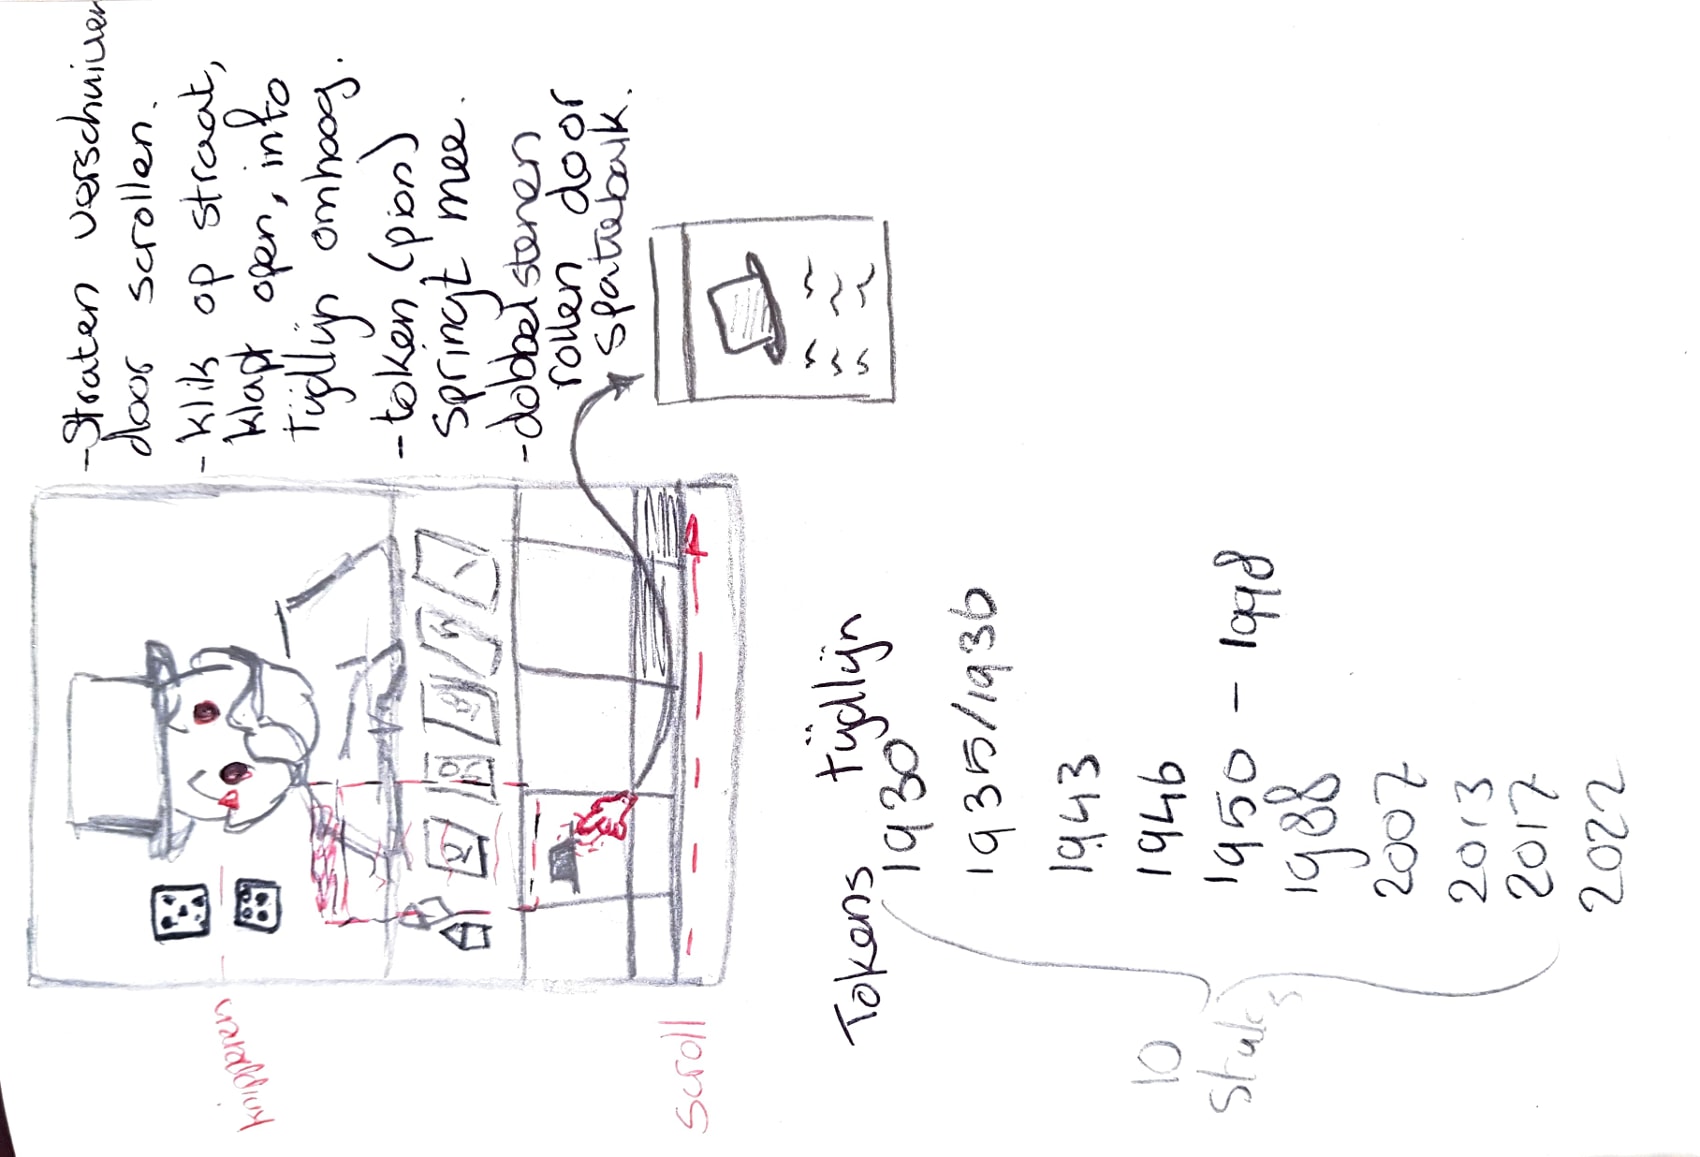 -Straten verschuiven
door scrollen.
-klik op straat,
klapt open, info
Tijdlijn omhoog.
-token (pion)
springt mee.
-dobbelstenen
rollen door
spatiebalk.
knipperen
Scroll
Tokens Tijdlijn
1930
1935/1936
1943
1946
1950 - 1998
1988
2007
2013
2017
2022
10
stuks